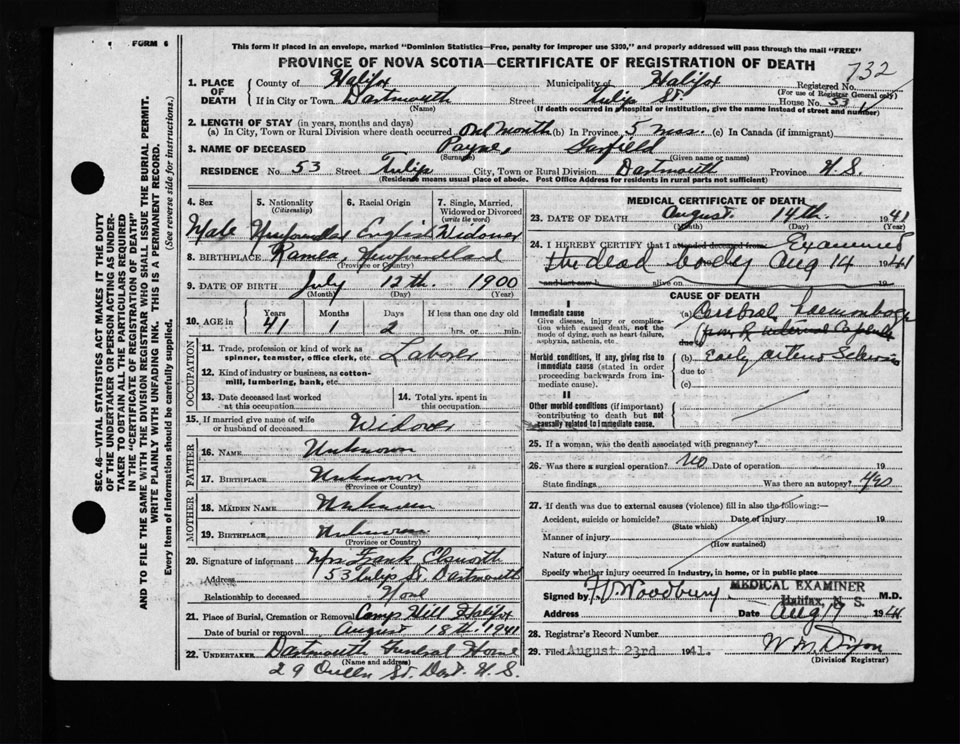 FORM 6
This form if placed in an envelope, marked "Dominion Statistics—Free, penalty for improper use $300," and properly addressed will pass through the mail "FREE"
PROVINCE OF NOVA SCOTIA—CERTIFICATE OF REGISTRATION OF DEATH
732
1. PLACE OF DEATH
County of Halifax Municipality of Halifax Registered No.
(For use of Registrar General only)
If in City or Town Dartmouth Street Tulip St House No. 53
(Name) (If death occurred in a hospital or institution, give the name instead of street and number)
2. LENGTH OF STAY (in years, months and days)
(a) In City, Town or Rural Division where death occurred One month (b) In Province 5 mos. (c) In Canada (if immigrant)
3. NAME OF DECEASED Payne, Garfield
(Surname) (Given name or names)
RESIDENCE No. 53 Street Tulip City, Town or Rural Division Dartmouth Province N.S.
(Residence means usual place of abode. Post Office Address for residents in rural parts not sufficient)
4. Sex 5. Nationality (Citizenship) 6. Racial Origin 7. Single, Married, Widowed or Divorced (write the word)
Male Newfoundland English Widower
8. BIRTHPLACE Ramea, Newfoundland
(Province or Country)
9. DATE OF BIRTH July 12th. 1900
(Month) (Day) (Year)
10. AGE in Years Months Days If less than one day old
41 1 2 hrs. or min.
OCCUPATION
11. Trade, profession or kind of work as spinner, teamster, office clerk, etc. Laborer
12. Kind of industry or business, as cotton-mill, lumbering, bank, etc.
13. Date deceased last worked at this occupation
14. Total yrs. spent in this occupation
15. If married give name of wife or husband of deceased Widower
FATHER
16. NAME Unknown
17. BIRTHPLACE Unknown
(Province or Country)
MOTHER
18. MAIDEN NAME Unknown
19. BIRTHPLACE Unknown
(Province or Country)
20. Signature of informant Mrs Frank
Address 53 Tulip St. Dartmouth
Relationship to deceased None
21. Place of Burial, Cremation or Removal Camp Hill Halifax
Date of burial or removal August 18th 1941
22. UNDERTAKER Dartmouth Funeral Home
(Name and address)
29 Queen St. Dart. N.S.
MEDICAL CERTIFICATE OF DEATH
23. DATE OF DEATH August 14th. 1941
(Month) (Day) (Year)
24. I HEREBY CERTIFY that I attended deceased from Examined
the dead body Aug 14 1941
and last saw h alive on 19
CAUSE OF DEATH
I
Immediate cause
Give disease, injury or complication which caused death, not the mode of dying, such as heart failure, asphyxia, asthenia, etc.
(a) Cerebral haemorrhage
due to from R internal capsule
Morbid conditions, if any, giving rise to immediate cause (stated in order proceeding backwards from immediate cause).
(b) Early arterio Sclerosis
due to
(c)
II
Other morbid conditions (if important) contributing to death but not causally related to immediate cause.
25. If a woman, was the death associated with pregnancy?
26. Was there a surgical operation? No Date of operation 19
State findings Was there an autopsy? yes
27. If death was due to external causes (violence) fill in also the following:—
Accident, suicide or homicide? Date of injury 19
(State which)
Manner of injury
(How sustained)
Nature of injury
Specify whether injury occurred in industry, in home, or in public place
Signed by Woodbury M.D.
MEDICAL EXAMINER
Halifax, N. S.
Address Date Aug 17 1941
28. Registrar's Record Number
29. Filed August 23rd 1941. W. M. Dixon
(Division Registrar)
SEC. 46—VITAL STATISTICS ACT MAKES IT THE DUTY
OF THE UNDERTAKER OR PERSON ACTING AS UNDERTAKER TO OBTAIN ALL THE PARTICULARS REQUIRED
IN THE "CERTIFICATE OF REGISTRATION OF DEATH"
AND TO FILE THE SAME WITH THE DIVISION REGISTRAR WHO SHALL ISSUE THE BURIAL PERMIT.
WRITE PLAINLY WITH UNFADING INK. THIS IS A PERMANENT RECORD.
Every item of information should be carefully supplied. (See reverse side for instructions.)